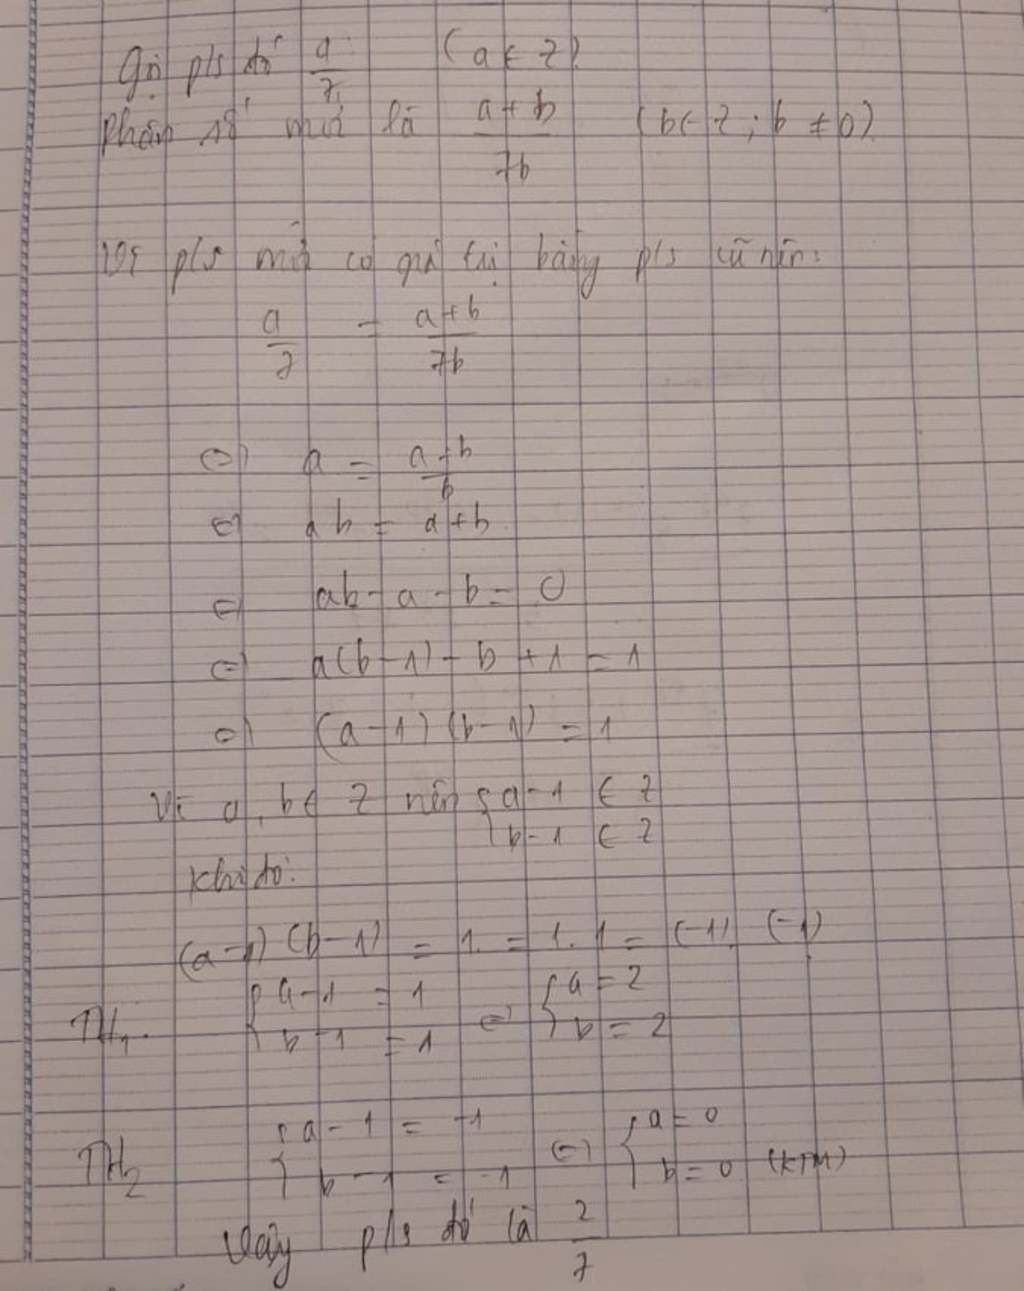 Gọi p/s đó a/7 (a ∈ Z)
Phân số mới là a+b/7b (b ∈ Z; b ≠ 0)
Vì p/s mới có giá trị bằng p/s cũ nên:
a/7 = a+b/7b
⇔ a = a+b/b
⇔ ab = a+b
⇔ ab - a - b = 0
⇔ a(b-1) - b + 1 = 1
⇔ (a-1) (b-1) = 1
Vì a, b ∈ Z nên { a-1 ∈ Z
b-1 ∈ Z
Khi đó:
(a-1) (b-1) = 1 = 1.1 = (-1) (-1)
TH1. { a-1 = 1 ⇔ { a = 2
b-1 = 1 b = 2
TH2 { a-1 = -1 ⇔ { a = 0
b-1 = -1 b = 0 (KTM)
Vậy p/s đó là 2/7